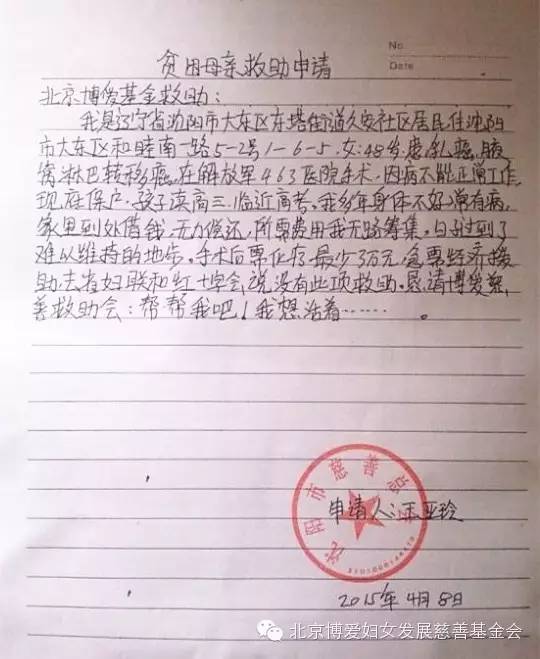 No.
Date
贫困母亲救助申请
北京博爱基金救助:
我是辽宁省沈阳市大东区东塔街道久安社区居民住沈阳
市大东区和睦南一路5-2号1-6-5.女:48岁,患乳癌,腋
窝淋巴转移癌,在解放军463医院手术,因病不能正常工作,
现.低保户,孩子读高三.临近高考,我多年身体不好,常有病,
家里到处借钱,无力偿还,所需费用我无路筹集,日子过到了
难以维持的地步.手术后需化疗.最少3万元,急需经济援
助,去省妇联和红十字会说没有此项救助.恳请博爱慈
善救助会:帮帮我吧!我想活着……。
沈阳市慈善总会
申请人:王亚玲
2015年4月8日
北京博爱妇女发展慈善基金会